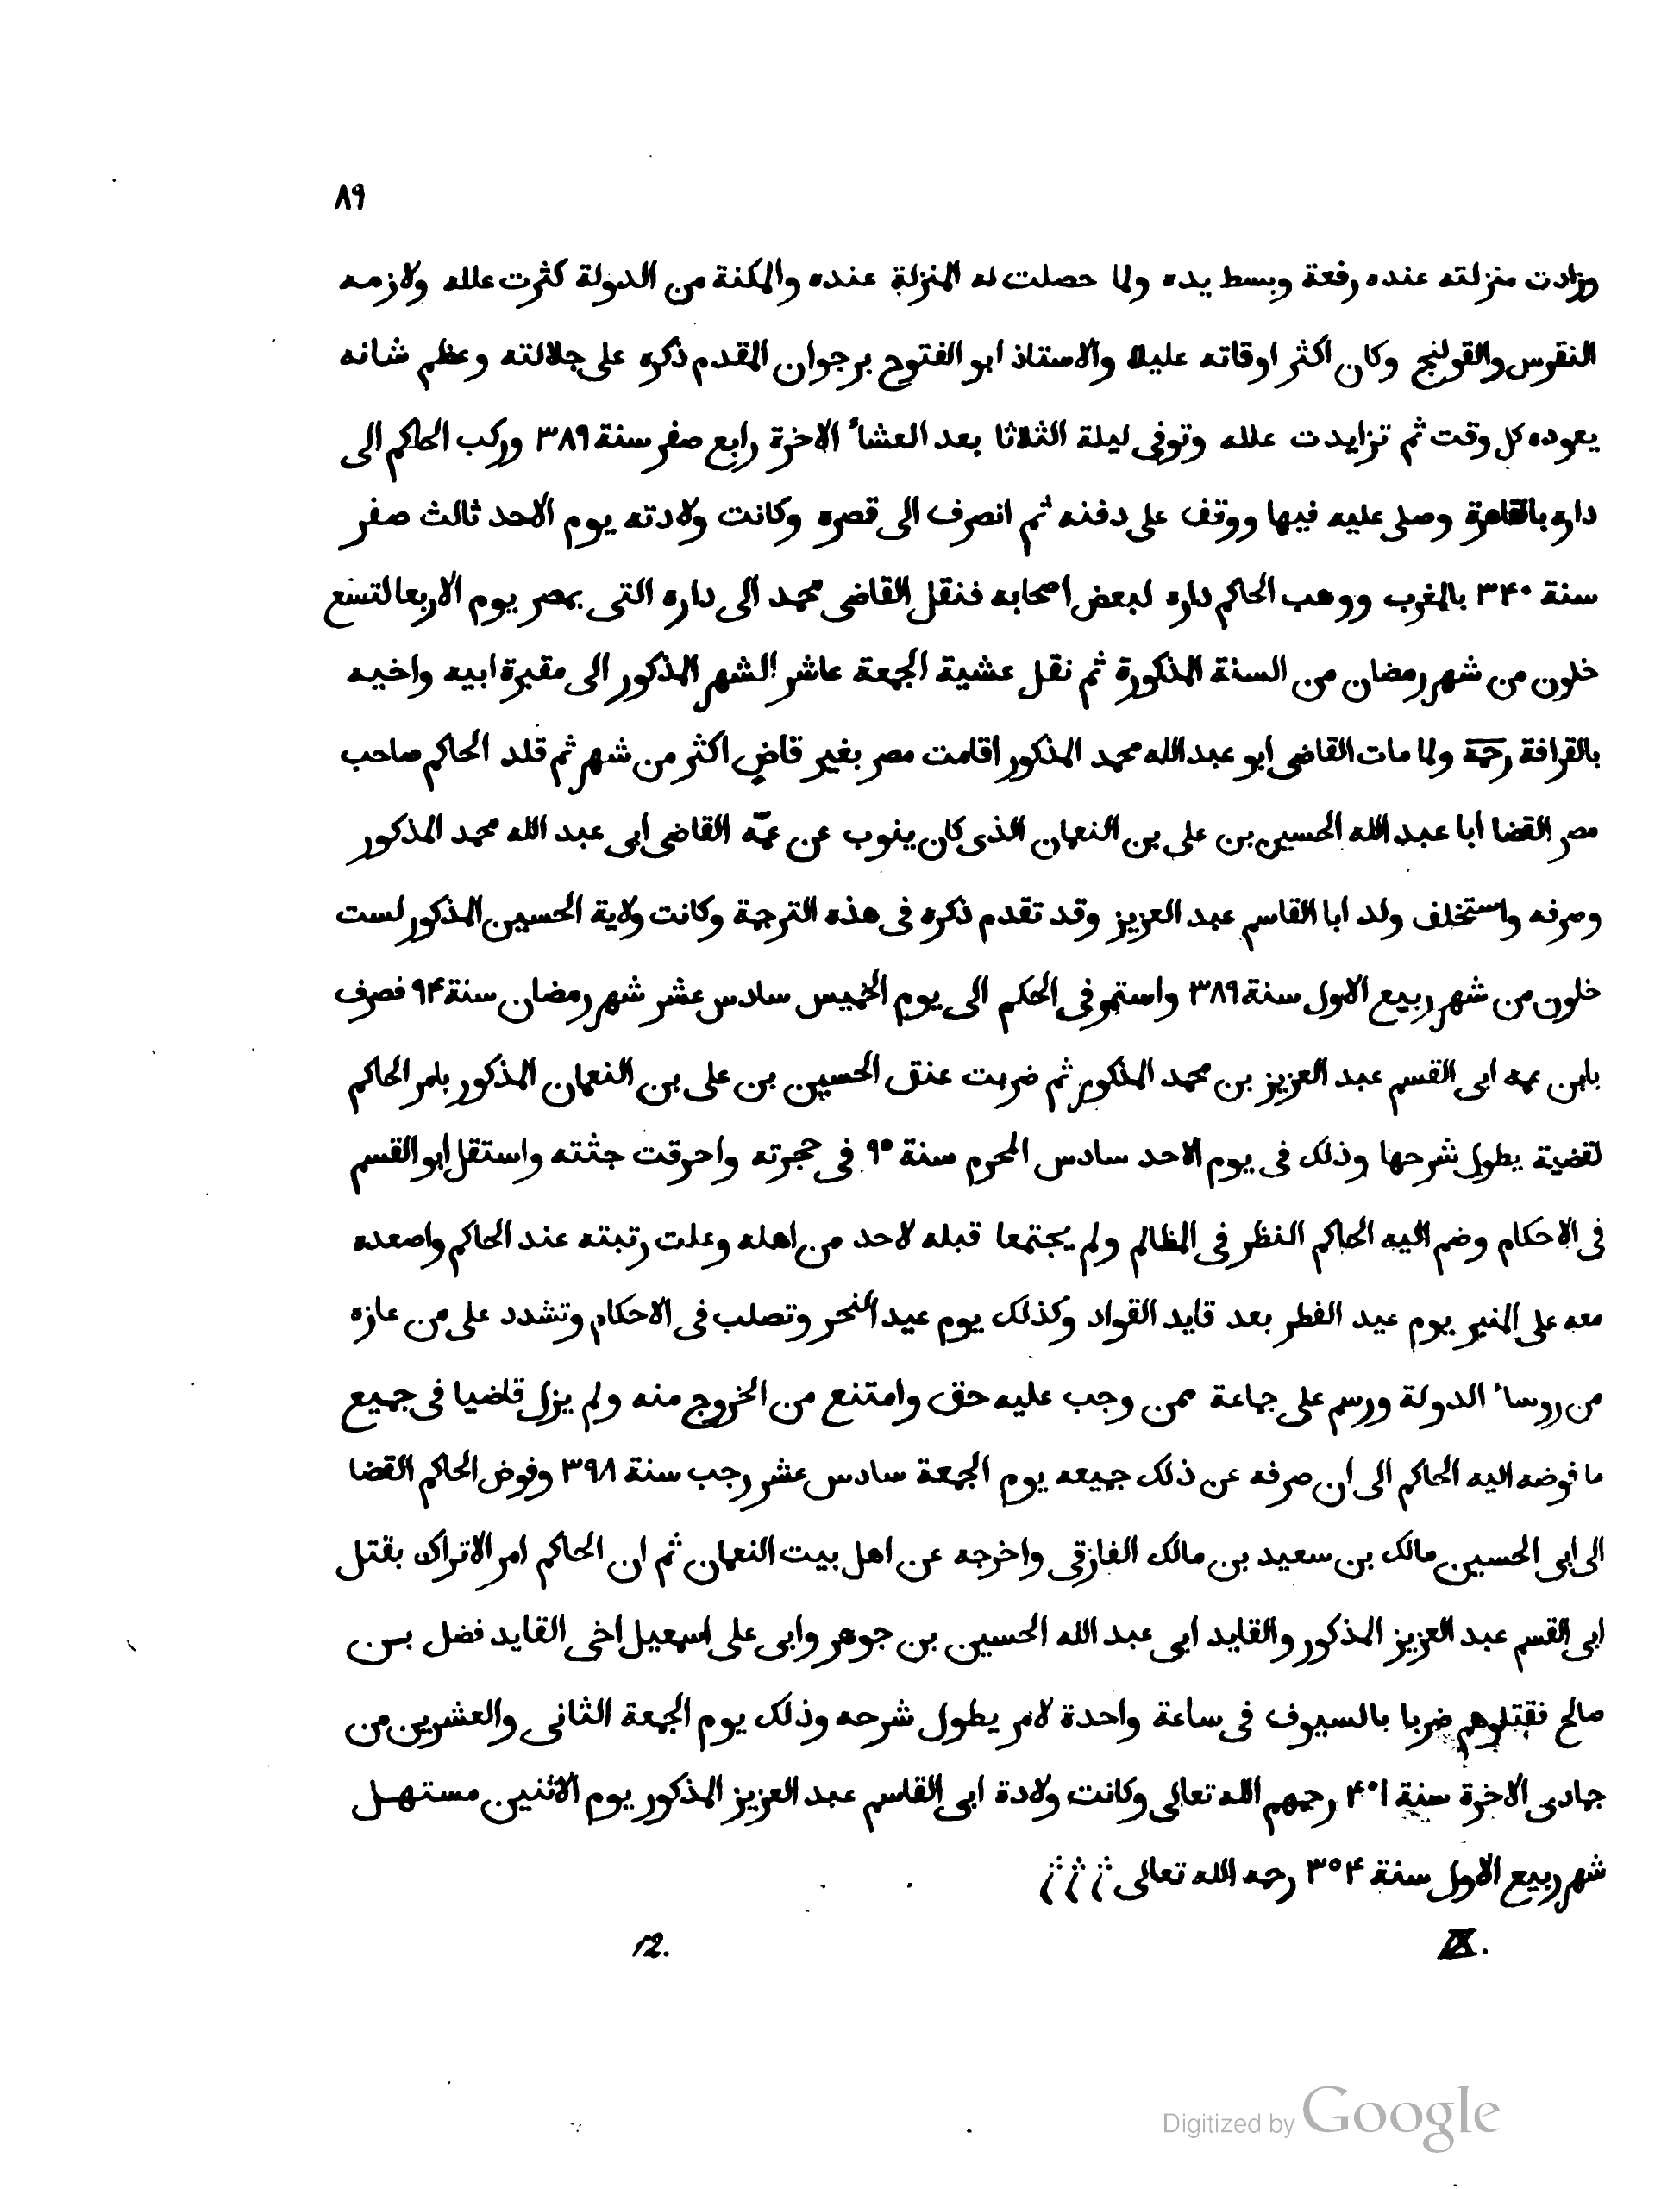 ٨٩
وزادت منزلته عنده رفعة وبسط يده ولما حصلت له المنزلة عنده والمكنة من الدولة كثرت علله ولازمه
النقرس والقولنج وكان اكثر اوقاته عليلا والاستاذ ابو الفتوح برجوان المقدم ذكره على جلالته وعظم شانه
يعوده كل وقت ثم تزايدت علله وتوفى ليلة الثلاثا بعد العشاء الاخرة رابع صفر سنة ٣٨٩ وركب الحاكم الى
داره بالقاهرة وصلى عليه فيها ووقف على دفنه ثم انصرف الى قصره وكانت ولادته يوم الاحد ثالث صفر
سنة ٣۴٠ بالمغرب ووهب الحاكم داره لبعض اصحابه فنقل القاضى محمد الى داره التى بمصر يوم الاربعا لتسع
خلون من شهر رمضان من السنة المذكورة ثم نقل عشية الجمعة عاشر الشهر المذكور الى مقبرة ابيه واخيه
بالقرافة رحمة ولما مات القاضى ابو عبد الله محمد المذكور اقامت مصر بغير قاضٍ اكثر من شهر ثم قلد الحاكم صاحب
مصر القضا ابا عبد الله الحسين بن على بن النعمان الذى كان ينوب عن عمّه القاضى ابى عبد الله محمد المذكور
وصرفه واستخلف ولد ابا القاسم عبد العزيز وقد تقدم ذكره فى هذه الترجمة وكانت ولاية الحسين المذكور لست
خلون من شهر ربيع الاول سنة ٣٨٩ واستمر فى الحكم الى يوم الخميس سادس عشر شهر رمضان سنة ٩۴ فصرف
بابن عمه ابى القسم عبد العزيز بن محمد المذكور ثم ضربت عنق الحسين بن على بن النعمان المذكور بامر الحاكم
لقضية يطول شرحها وذلك فى يوم الاحد سادس المحرم سنة ٩٥ فى حجرته واحرقت جثته واستقل ابو القسم
فى الاحكام وضم اليه الحاكم النظر فى المظالم ولم يجتمعا قبله لاحد من اهله وعلت رتبته عند الحاكم واصعده
معه على المنبر يوم عيد الفطر بعد قايد القواد وكذلك يوم عيد النحر وتصلب فى الاحكام وتشدد على من عازه
من روساء الدولة ورسم على جماعة ممن وجب عليه حق وامتنع من الخروج منه ولم يزل قاضيا فى جميع
ما فوضه اليه الحاكم الى ان صرفه عن ذلك جميعه يوم الجمعة سادس عشر رجب سنة ٣٩٨ وفوض الحاكم القضا
الى ابى الحسين مالك بن سعيد بن مالك الفازقى واخرجه عن اهل بيت النعمان ثم ان الحاكم امر الاتراك بقتل
ابى القسم عبد العزيز المذكور والقايد ابى عبد الله الحسين بن جوهر وابى على اسمعيل اخى القايد فضل بن
صالح فقتلوهم ضربا بالسيوف فى ساعة واحدة لامر يطول شرحه وذلك يوم الجمعة الثانى والعشرين من
جمادى الاخرة سنة ۴٠١ رحمهم الله تعالى وكانت ولادة ابى القاسم عبد العزيز المذكور يوم الاثنين مستهل
شهر ربيع الاول سنة ٣٥۴ رحمه الله تعالى
IX. 12.
Digitized by Google